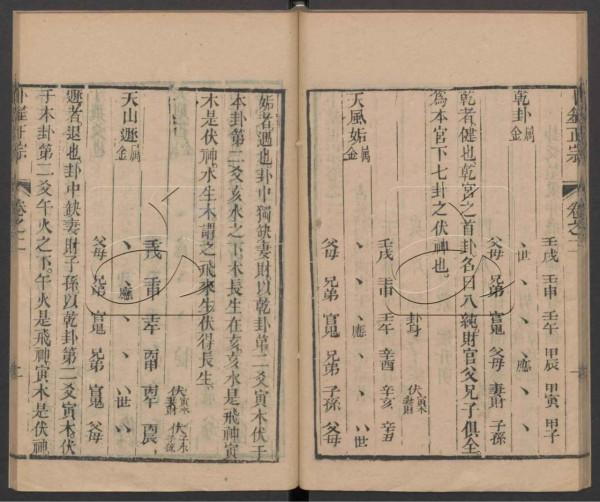 筮正宗 卷之二
壬戌 壬申 壬午 甲辰 甲寅 甲子
乾卦 屬金 、世 、 、 、應 、 、
父母 兄弟 官鬼 父母 妻財 子孫
乾者健也乾宮之首卦名曰八純財官父兄子俱全
為本宮下七卦之伏神也
卦身 伏寅木妻財
壬戌 壬申 壬午 辛酉 辛亥 辛丑
天風姤 屬金 、 、 、應 、 、 〵世
父母 兄弟 官鬼 兄弟 子孫 父母
姤者遇也卦中獨缺妻財以乾卦第二爻寅木伏于
本卦第二爻亥水之下木長生在亥亥水是飛神寅
木是伏神水生木謂之飛來生伏得長生
伏寅木妻財 伏子水子孫
壬戌 壬申 壬午 丙申 丙午 丙辰
天山遯 屬金 、 、應 、 、 〵世 〵
父母 兄弟 官鬼 兄弟 官鬼 父母
遯者退也卦中缺妻財子孫以乾卦第二爻寅木伏
于本卦第二爻午火之下午火是飛神寅木是伏神
卜筮正宗 卷之二